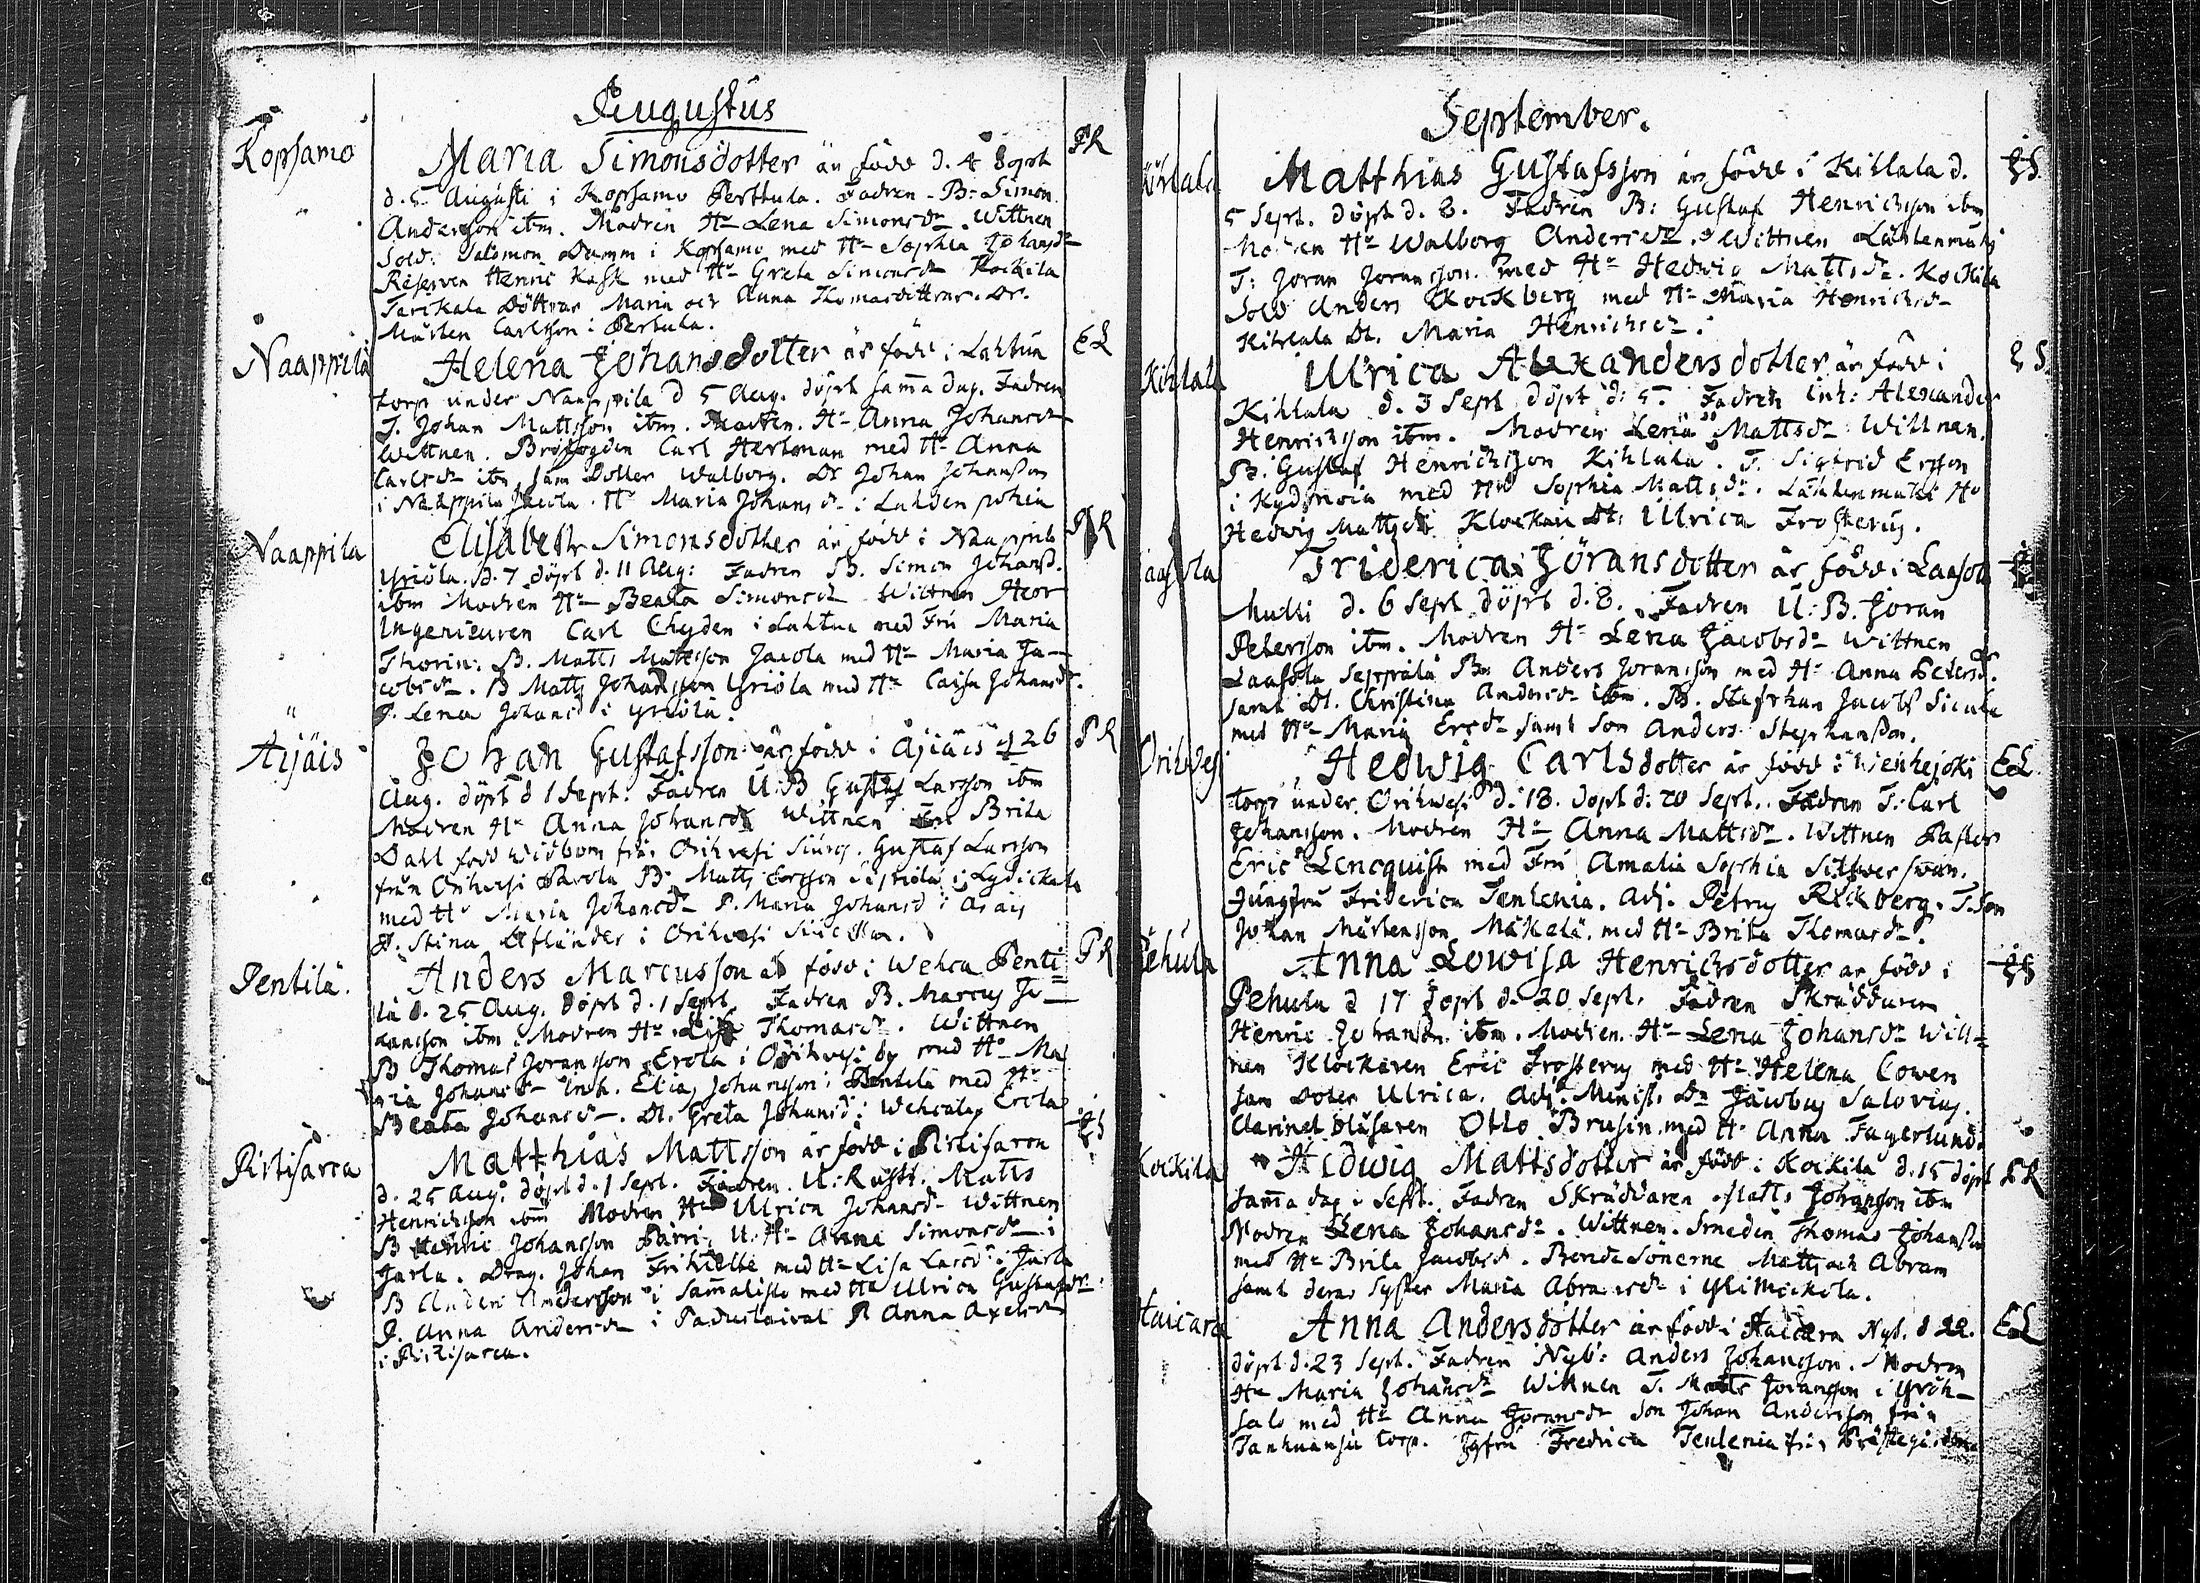 Augustus
Kopsamo
PR
Maria Simonsdotter är född d. 4 döpt
d. 5 Augusti i Kopsamo Perttula. Fadren B: Simon
Andersson ibm. Modren Hu Lena Simonsdr. Wittnen
Sold: Salomon Damm i Kopsamo med Hu Sophia Johansdr
Reserven Henric Kask med Hu Greta Simonsdr Kockila
Döttrar Maria och Anna Thomasdöttrar. Dr.
Mårten Carlsson i Pertula.
Naappila
EL
Helena Johansdotter är född i Lahtua
torp under Naappila d 5 Aug. döpt samma dag. Fadren
T. Johan Mattsson ibm. Modren. Hu Anna Johansdr
Wittnen. Brofogden Carl Hertman med Hu Anna
Carlsdr ibm sam Dotter Walborg. Dr Johan Johansson
i Naappila Jacola. Hu Maria Johansdr i Lahden pohja
Naappila
PR
Elisabeth Simonsdotter är född i Naappila
Yriölä. d. 7 döpt d. 11 Aug: Fadren B. Simon Johanss.
ibm Modren Hu Beata Simonsdr Wittnen Herr
Ingenieuren Carl Chyden i Lahtua med Fru Maria
Thorin. B. Matts Mattsson Jacola med Hu Maria Ja-
cobsdr. B Matts Johansson Yriölä med Hu Caisa Johansdr.
P. Lena Johansd i Yriölä.
Äijäis
PR
Johan Gustafsson är född i Äjiäis d 26
Aug. döpt d 1 Sept. Fadren U. B Gustaf Larsson ibm
Modren Hu Anna Johansdr Wittnen Fru Brita
Dahl född Widbom från Orihvesi. Gustaf Larsson
från Orihvesi Pavola B: Matts Ersson Seppilä i Lydickala
med Hu Maria Johansdr P. Maria Johansd i Äiäis
P. Stina Uflander i Orihvesi.
Pentilä.
PR
Anders Marcusson är född i Wehca Penti
lä d. 25 Aug. döpt d. 1 Sept. Fadren B. Marcus Jo-
hansson ibm. Modren Hu Lisa Thomasdr. Wittnen
B Thomas Joransson Erola i Orihvesi by med Hu Ma
ria Johansdr Inh. Elias Johansson i Pentilä med Hu
Beata Johansdr. Dr. Greta Johansd i Wehcala Erola
Pitisarca
Matthias Mattsson är född i Pitisarca
d. 25 Aug. döpt d. 1 Sept. Fadren. U: Rustt. Matts
Henricsson ibm Modren Hu Ulrica Johansdr Wittnen
B Henric Johansson Parri U. Hu Anna Simonsdr i
Jarla. Drag. Johan med Hu Lisa Larsdr i Jarla
B Anders Andersson i Sammalisto med Hu Ulrica Gustafsdr
P. Anna Andersdr i Padustaival P Anna Axelsdr
i Pitisarca.
September.
Kihlala
Matthias Gustafsson är född i Kihlala d.
5 Sept. döpt d. 8. Fadren B: Gustaf Henricsson ibm
Modren Hu Walborg Andersdr. Wittnen Lähtenmäki
T: Joran Joransson med Hu Hedwig Mattsdr. Kockila
Sold Anders Kockberg med Hu Maria Henricsdr
Kihlala Dr. Maria Henricsdr.
Kihlala
Ulrica Alexandersdotter är född i
Kihlala d. 3 Sept döpt d: 5. Fadren Inh: Alexander
Henricsson ibm. Modren Lena Mattsdr Wittnen.
B. Gustaf Henricsson Kihlala. T. Sigfrid Ersson
i Kydnoia med Hu Sophia Mattsdr. Lähtenmäki Hu
Hedwig Mattsdr Klockare Dr: Ulrica Frosterus.
Laasola
Friderica Jöransdotter är född i Laasola
Mulli d. 6 Sept döpt d. 8. Fadren U: B. Joran
Petersson ibm. Modren Hu Lena Jacobsdr Wittnen
Laasola Seppälä Bn Anders Joransson med Hu Anna Petersdr.
samt Dr. Christina Andersdr ibm. B. Stephan Jacobss Sicula
med Hu Maria Ersdr samt Son Anders Stephansson.
Orihvesi
EL
Hedwig Carlsdotter är född i Wenhejoki
torp under Orihwesi d: 18. döpt d: 20 Sept. Fadren T. Carl
Johansson. Modren Hu Anna Mattsdr. Wittnen Pastor
Eric Lencquist med Fru Amalia Sophia Silfwerswan.
Jungfru Friderica Tenlenia. Adj. Petrus Rekberg. T. Son
Johan Mårtensson Mäkelä. med Hu Brita Thomasdr.
Pehula
Anna Lowisa Henricsdotter är född i
Pehula d 17 döpt d. 20 Sept. Fadren Skräddaren
Henric Johansson ibm. Modren. Hu Lena Johansdr Witt=
nen Klockaren Eric Frosterus med Hu Helena Cowen
sam Doter Ulrica. Adj. Minist. Dn Jacobus Salovius.
Clarinet blåsaren Otto Brusin med Hu Anna Fagerlund.
Kockila
PR
Hedwig Mattsdotter är född i Kockila d. 15 döpt
samma dag i Sept. Fadren Skräddaren Matts Johansson ibm
Modren Lena Johansdr. Wittnen. Smeden Thomas Johansson
med Hu Brita Jacobsd. Bonde Sönerne Matts och Abram
samt deras Syster Maria Abramsdr i Yli Mickola.
Haicara
EL
Anna Andersdotter är född i Haicara Nyb. d 22.
döpt d. 23 Sept. Fadren Nyb: Anders Johansson. Modren
Hu Maria Johansdr Wittnen T. Matts Joransson i Yrön-
salo med Hu Anna Joransdr Son Johan Andersson från
Tanhuansu torp. Jgfru Fredrica Tenlenia från Prästegården